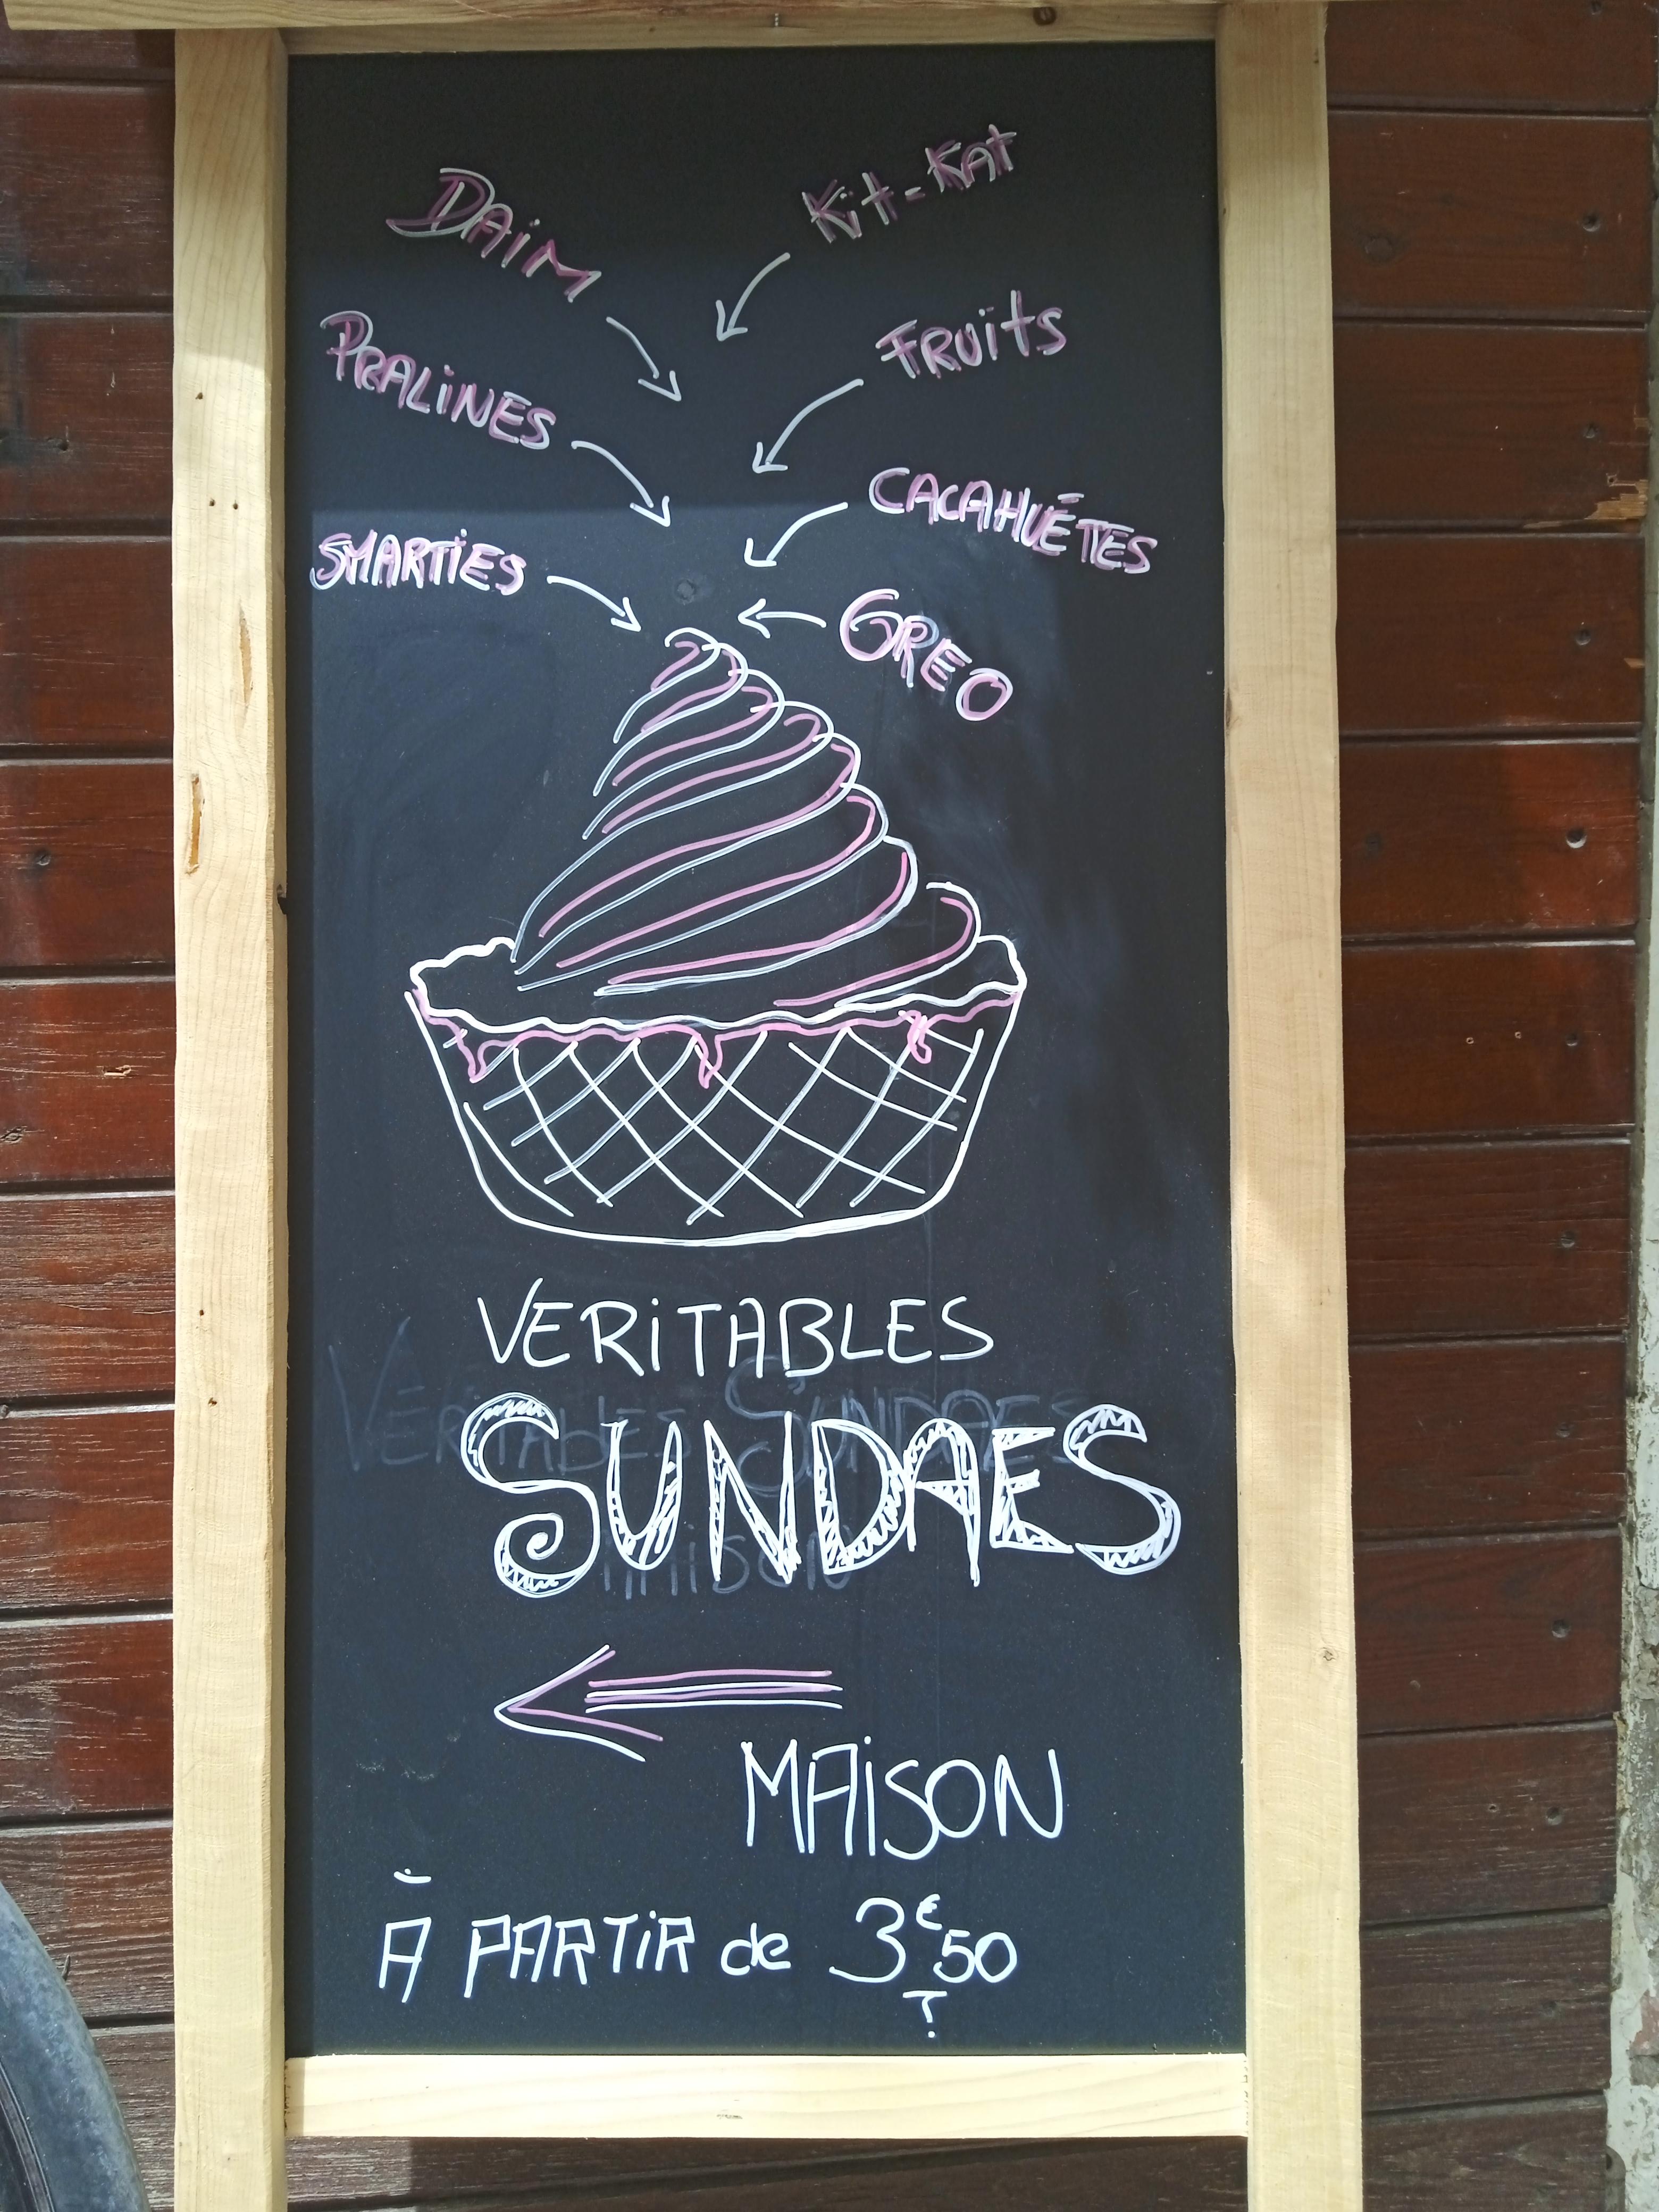 DAiM
Kit-KAt
PRALiNES
FRUits
CACAHUÈTES
SMARTiES
OREO
VERiTABLES
SUNDAES
MAiSON
À PARTiR de 3€50
VERiTAbLES SUNDAES
MAiSON